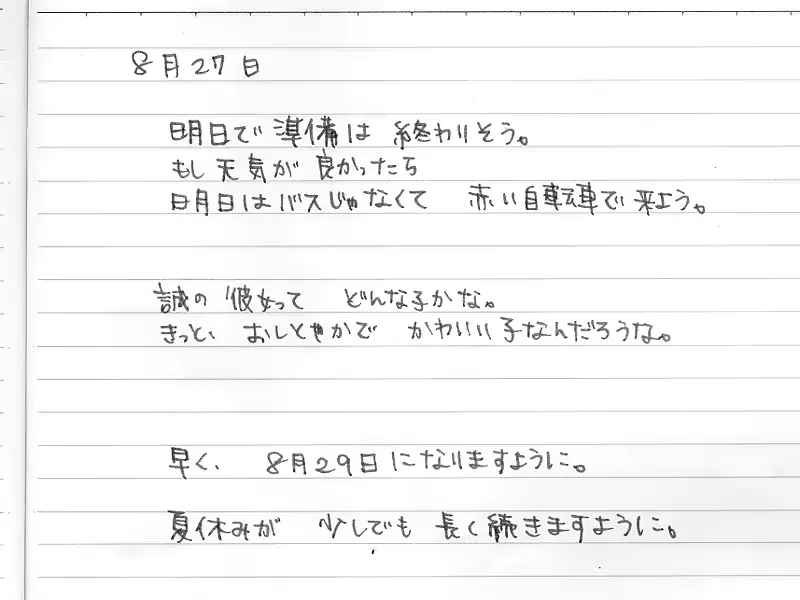 8月27日
明日で準備は 終わりそう。
もし 天気が 良かったら
明日はバスじゃなくて 赤い自転車で来よう。
誠の 彼女って どんな子かな。
きっと、おしとやかで かわいい子なんだろうな。
早く、8月29日になりますように。
夏休みが 少しでも 長く続きますように。